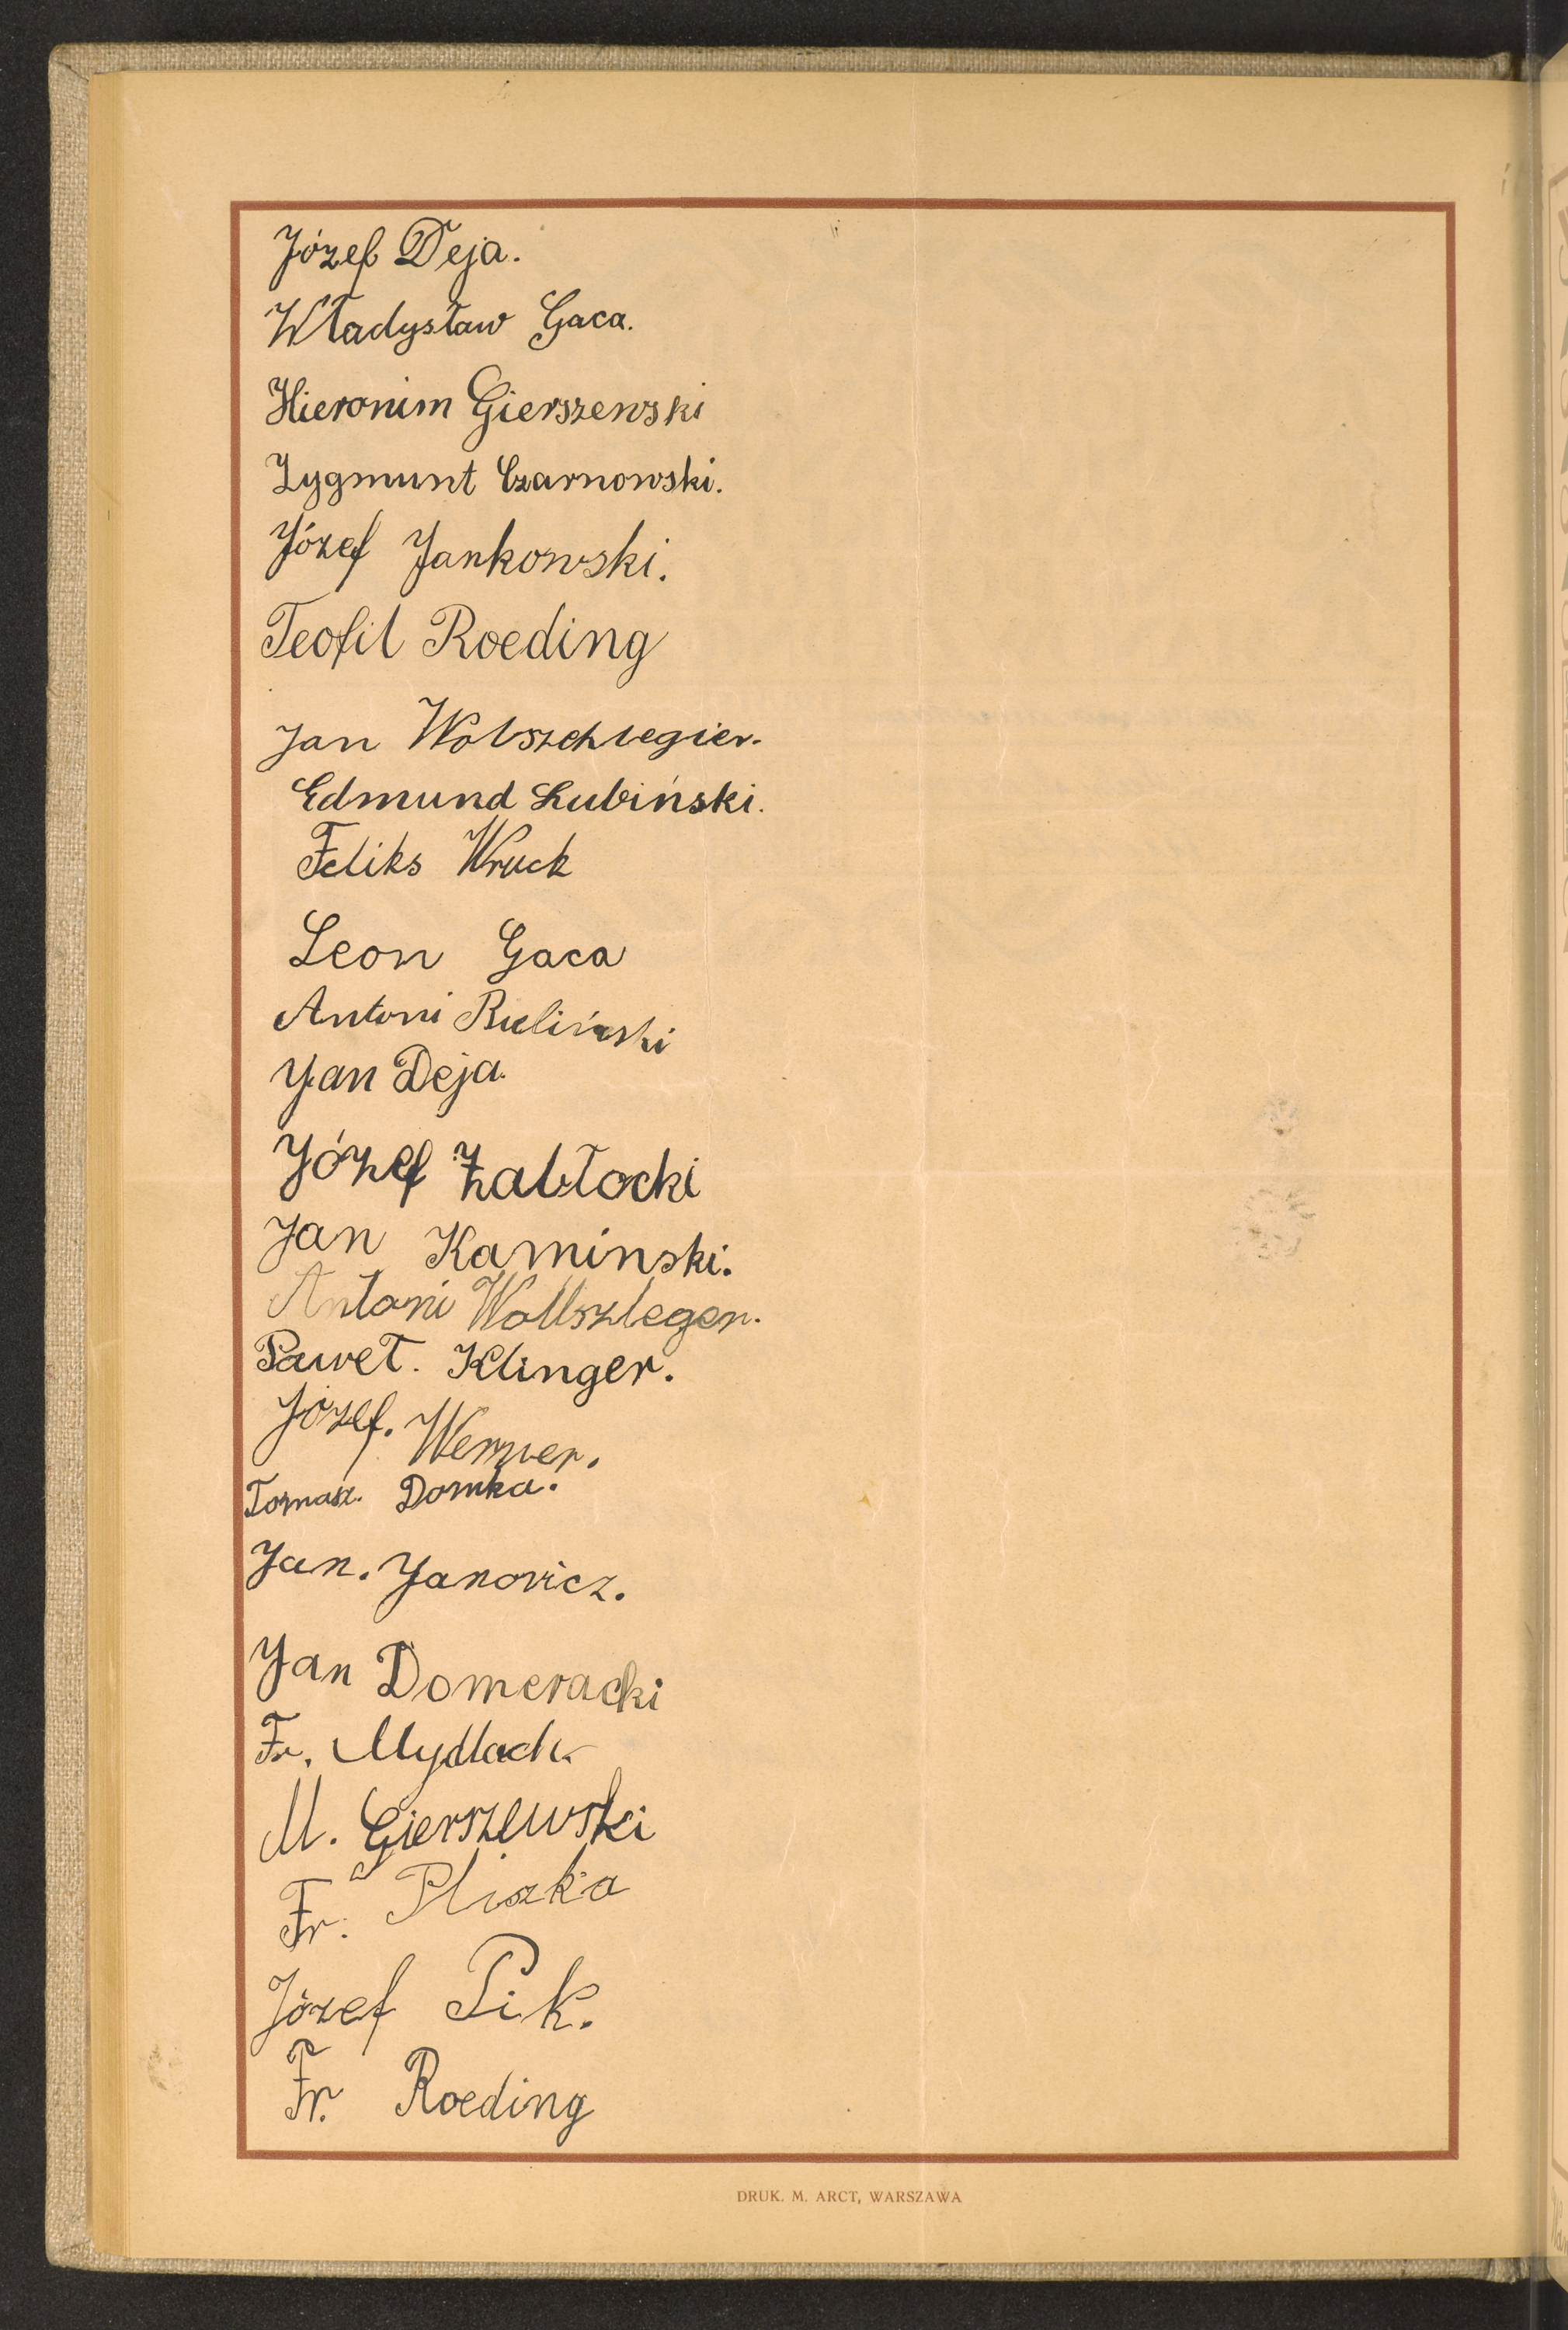 Józef Deja.
Władysław Gaca.
Hieronim Gierszewski
Zygmunt Czarnowski.
Józef Jankowski.
Teofil Roeding
Jan Wolszchlegier.
Edmund Lubiński.
Feliks Wruck
Leon Gaca
Antoni Buliński
Jan Deja.
Józef Żabłocki
Jan Kaminski.
Antoni Wollszleger.
Paweł. Klinger.
Józef. Werner.
Tomasz. Domka.
Jan. Janovicz.
Jan Domeracki
Fr. Mydlach.
M. Gierszewski
Fr. Pliszka
Józef Pik.
Fr. Roeding
DRUK. M. ARCT, WARSZAWA